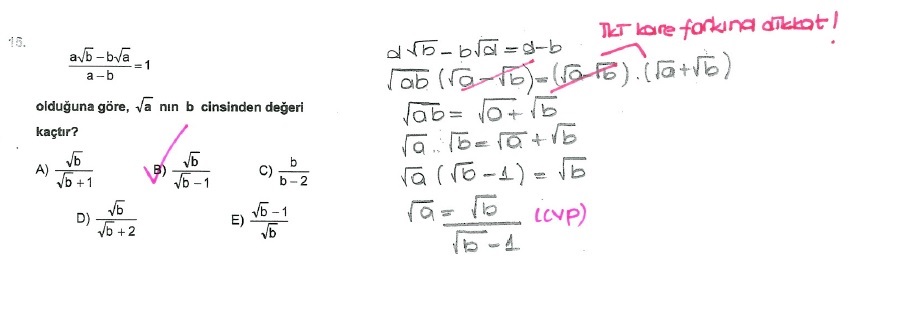 15.
a√b − b√a / a − b = 1
olduğuna göre, √a nın b cinsinden değeri
kaçtır?
A) √b / √b + 1
B) √b / √b − 1
C) b / b − 2
D) √b / √b + 2
E) √b − 1 / √b
İki kare farkına dikkat!
a√b − b√a = a − b
√ab (√a − √b) = (√a − √b) . (√a + √b)
√ab = √a + √b
√a . √b = √a + √b
√a (√b − 1) = √b
√a = √b / √b − 1 (cvp)